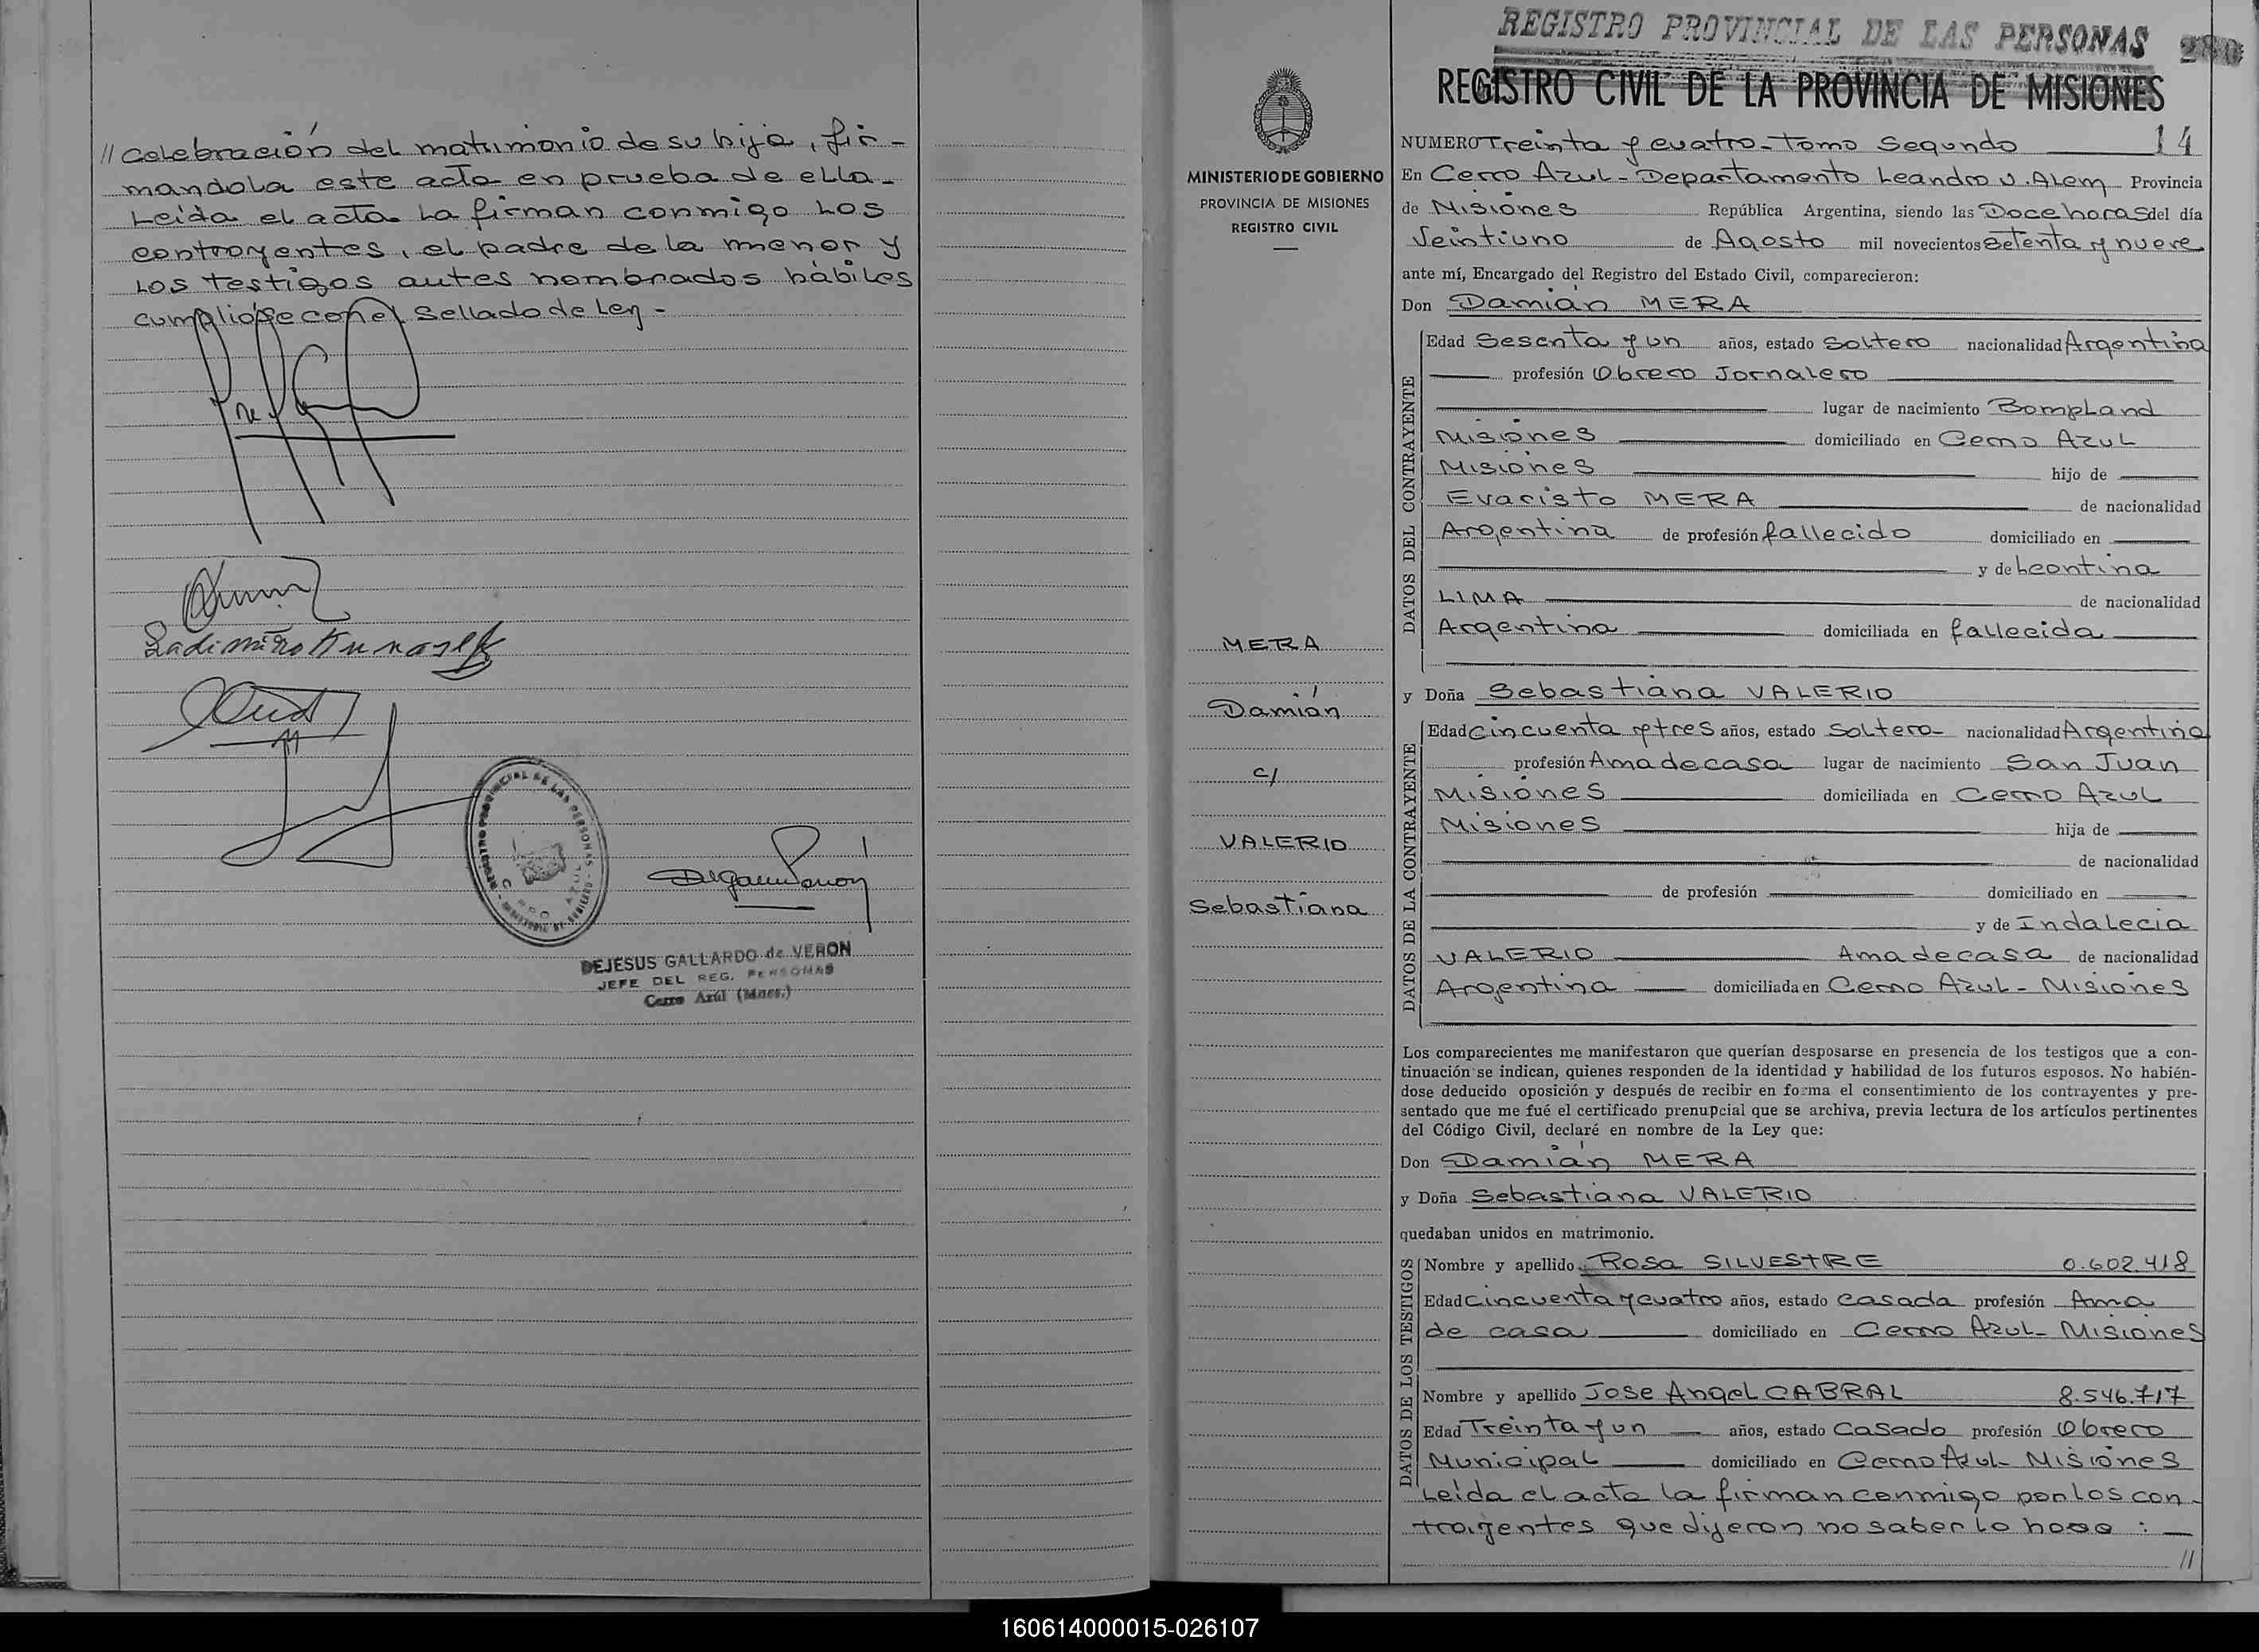 // Celebración del matrimonio de su hija, fir-
mandola este acta en prueba de ella-
Leida el acta la firman conmigo los
contrayentes, el padre de la menor y
los testigos antes nombrados hábiles
cumpliose con el sellado de Ley -
REGISTRO PROVINCIAL DE LAS PERSONAS
DEJESUS GALLARDO de VERON
JEFE DEL REG. PERSONAS
Cerro Azúl (Mnes.)
MINISTERIO DE GOBIERNO
PROVINCIA DE MISIONES
REGISTRO CIVIL
MERA
Damián
c/
VALERIO
Sebastiana
REGISTRO PROVINCIAL DE LAS PERSONAS 280
REGISTRO CIVIL DE LA PROVINCIA DE MISIONES
NUMERO Treinta y cuatro - Tomo Segundo 14
En Cerro Azul - Departamento Leandro N. Alem Provincia
de Misiones República Argentina, siendo las Doce horas del día
Veintiuno de Agosto mil novecientos setenta y nueve
ante mí, Encargado del Registro del Estado Civil, comparecieron:
Don Damián MERA
DATOS DEL CONTRAYENTE
Edad Sesenta y un años, estado soltero nacionalidad Argentina
profesión Obrero Jornalero
lugar de nacimiento Bompland
Misiones domiciliado en Cerro Azul
Misiones hijo de
Evaristo MERA de nacionalidad
Argentina de profesión fallecido domiciliado en
y de Leontina
LIMA de nacionalidad
Argentina domiciliada en fallecida
y Doña Sebastiana VALERIO
DATOS DE LA CONTRAYENTE
Edad cincuenta y tres años, estado soltero - nacionalidad Argentina
profesión Ama de casa lugar de nacimiento San Juan
Misiones domiciliada en Cerro Azul
Misiones hija de
de nacionalidad
de profesión domiciliado en
y de Indalecia
VALERIO Ama de casa de nacionalidad
Argentina domiciliada en Cerro Azul - Misiones
Los comparecientes me manifestaron que querían desposarse en presencia de los testigos que a con-
tinuación se indican, quienes responden de la identidad y habilidad de los futuros esposos. No habién-
dose deducido oposición y después de recibir en forma el consentimiento de los contrayentes y pre-
sentado que me fué el certificado prenupcial que se archiva, previa lectura de los artículos pertinentes
del Código Civil, declaré en nombre de la Ley que:
Don Damián MERA
y Doña Sebastiana VALERIO
quedaban unidos en matrimonio.
DATOS DE LOS TESTIGOS
Nombre y apellido Rosa SILVESTRE 0.602.418
Edad cincuenta y cuatro años, estado casada profesión Ama
de casa domiciliado en Cerro Azul - Misiones
Nombre y apellido Jose Angel CABRAL 8.546.717
Edad Treinta y un años, estado Casado profesión Obrero
Municipal domiciliado en Cerro Azul - Misiones
Leida el acta la firman conmigo por los con-
trayentes que dijeron no saber lo hace :
//
160614000015-026107